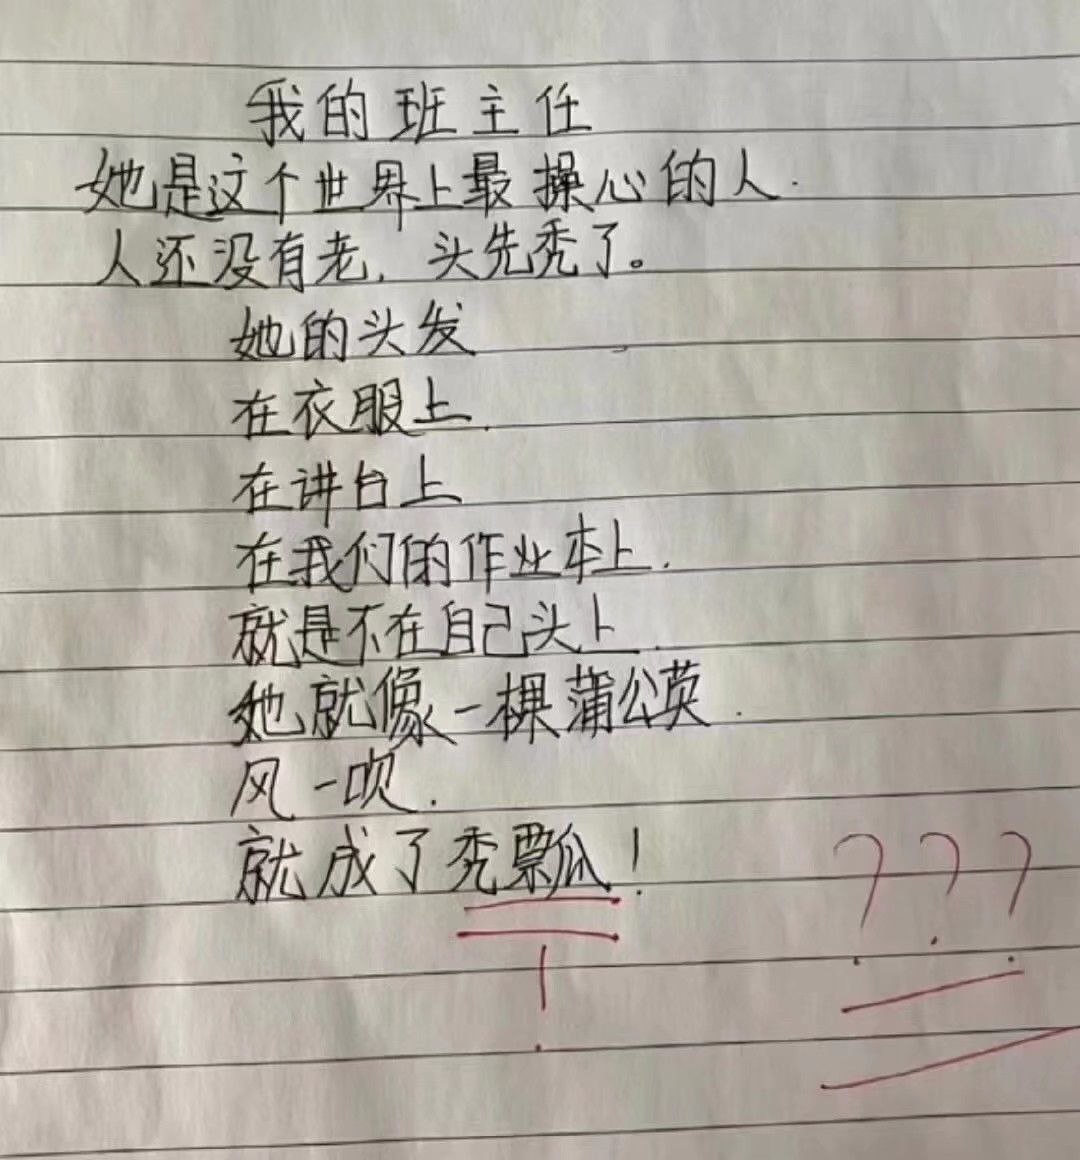 我的班主任
她是这个世界上最操心的人.
人还没有老,头先秃了。
她的头发
在衣服上.
在讲台上
在我们的作业本上.
就是不在自己头上.
她就像一棵蒲公英.
风一吹.
就成了秃瓢!
???
!